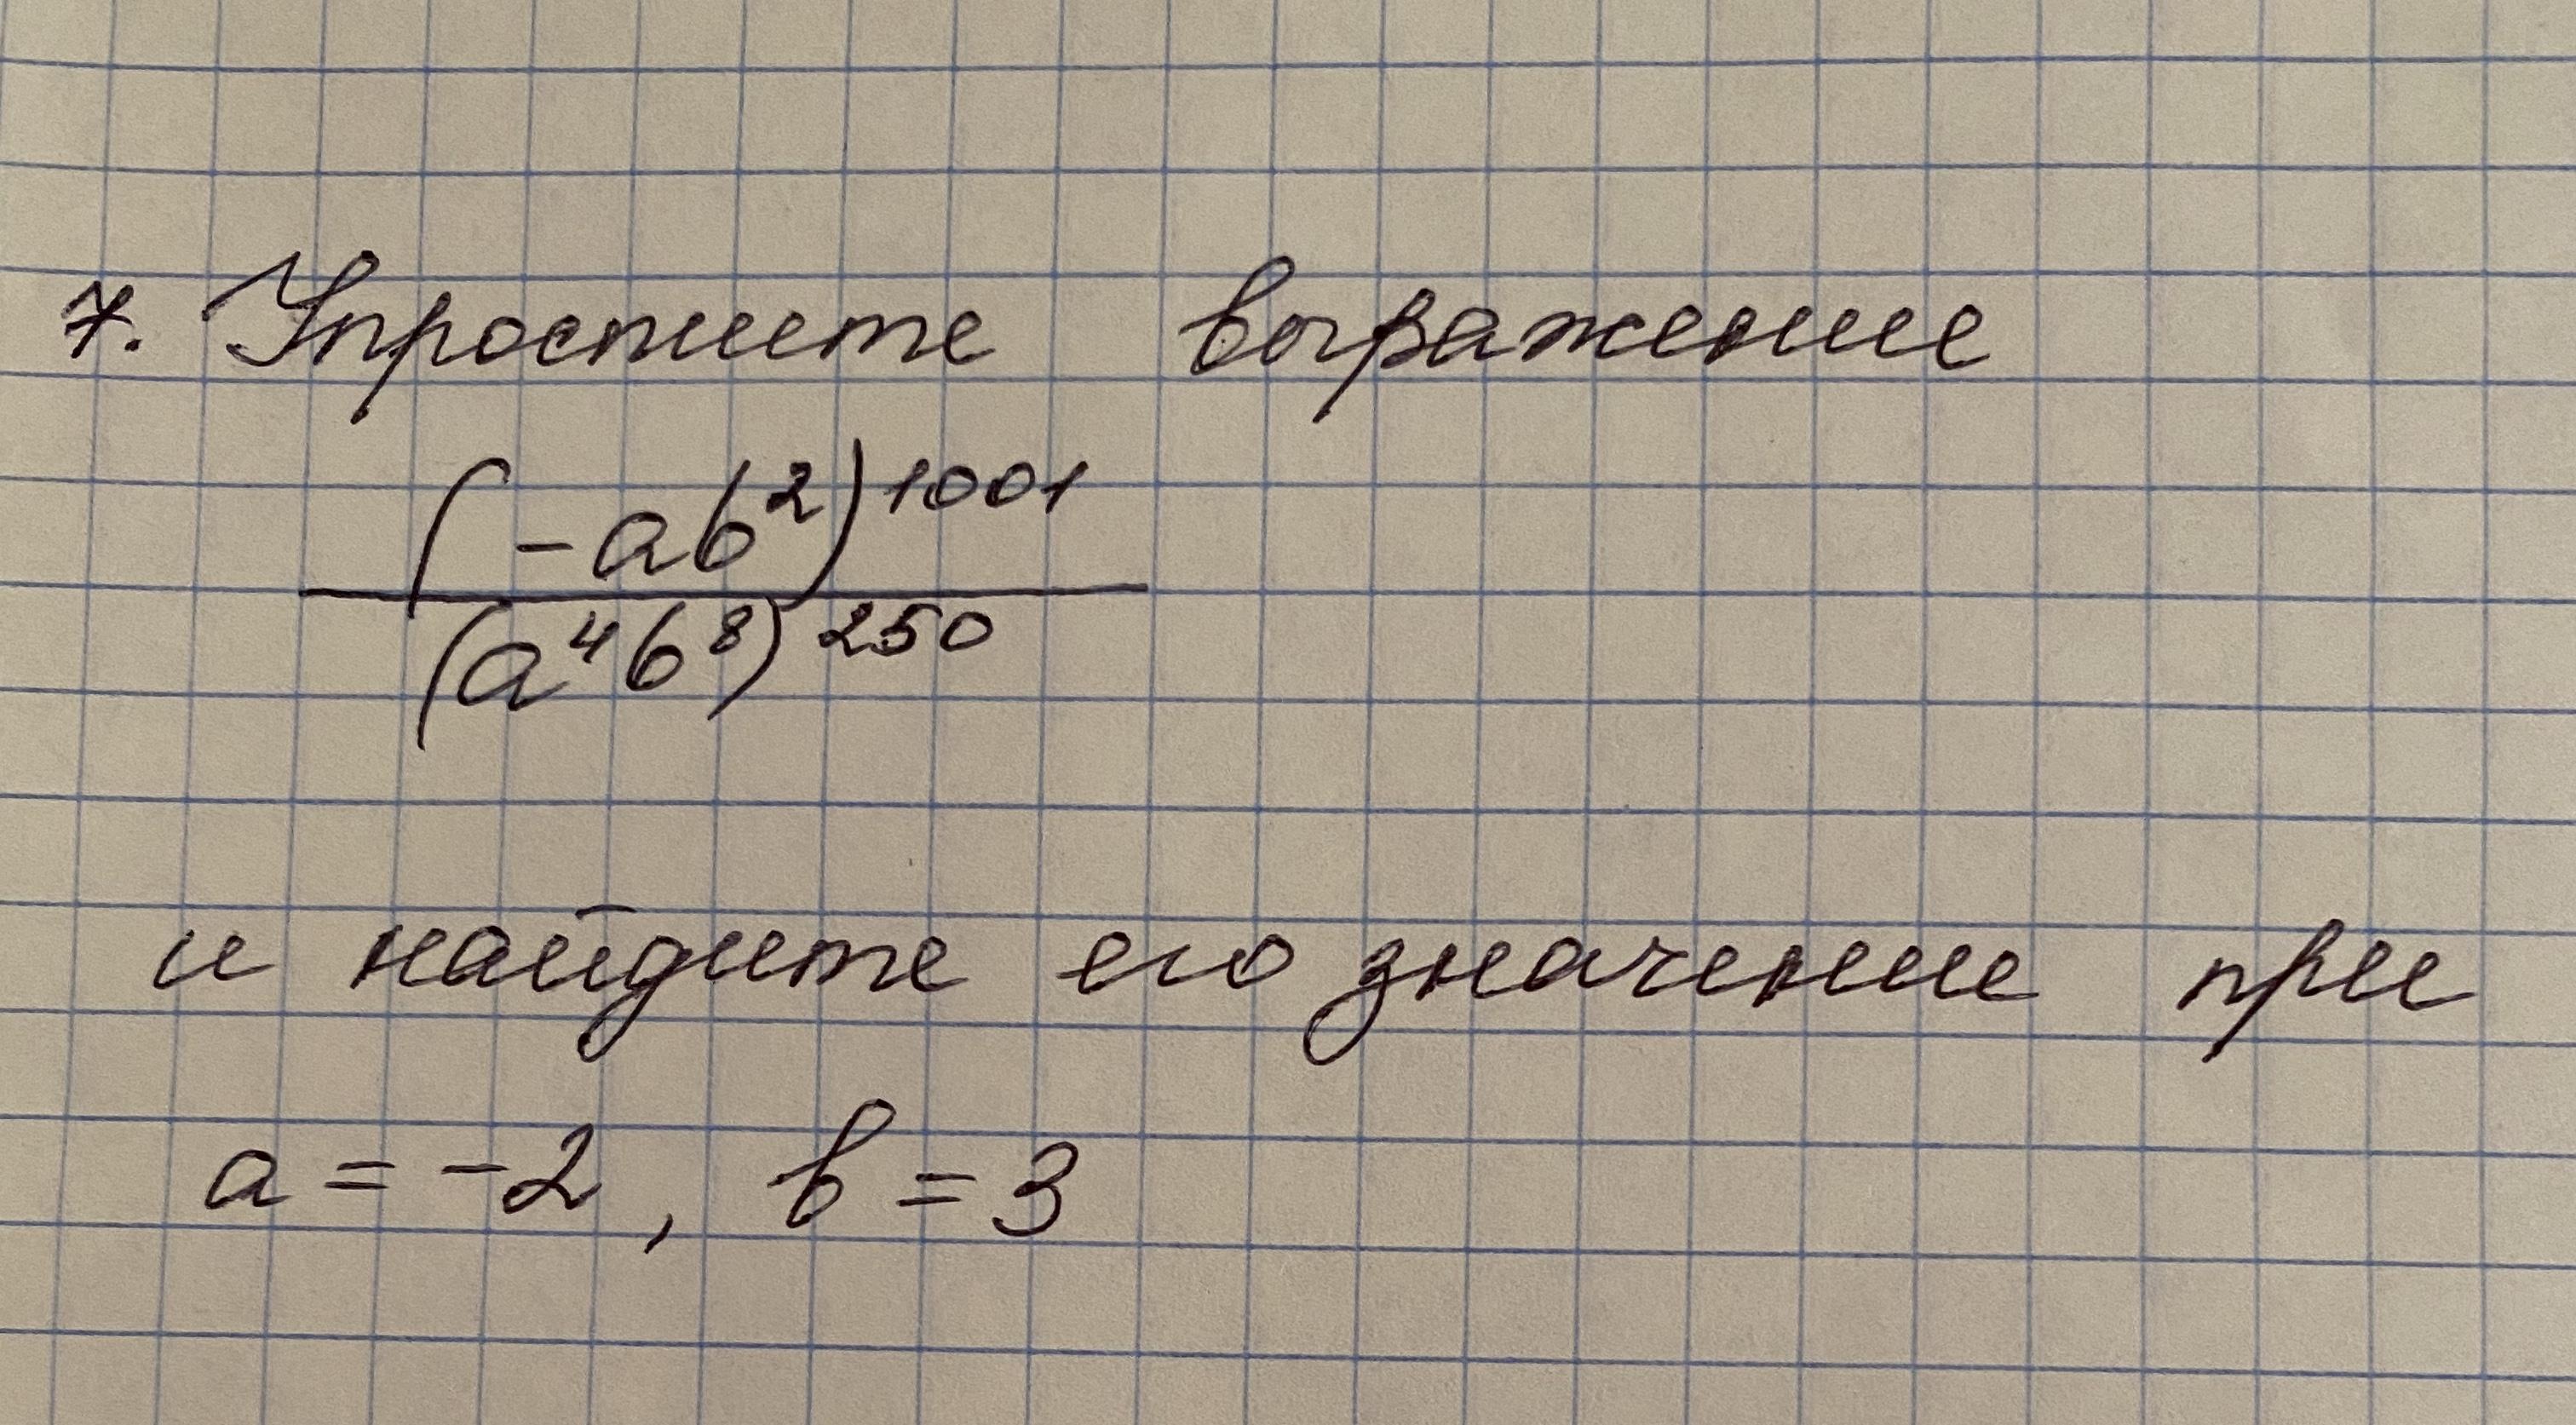 7. Упростите выражение
(-ab²)¹⁰⁰¹
(a⁴b⁸)²⁵⁰
и найдите его значение при
a = -2, b = 3